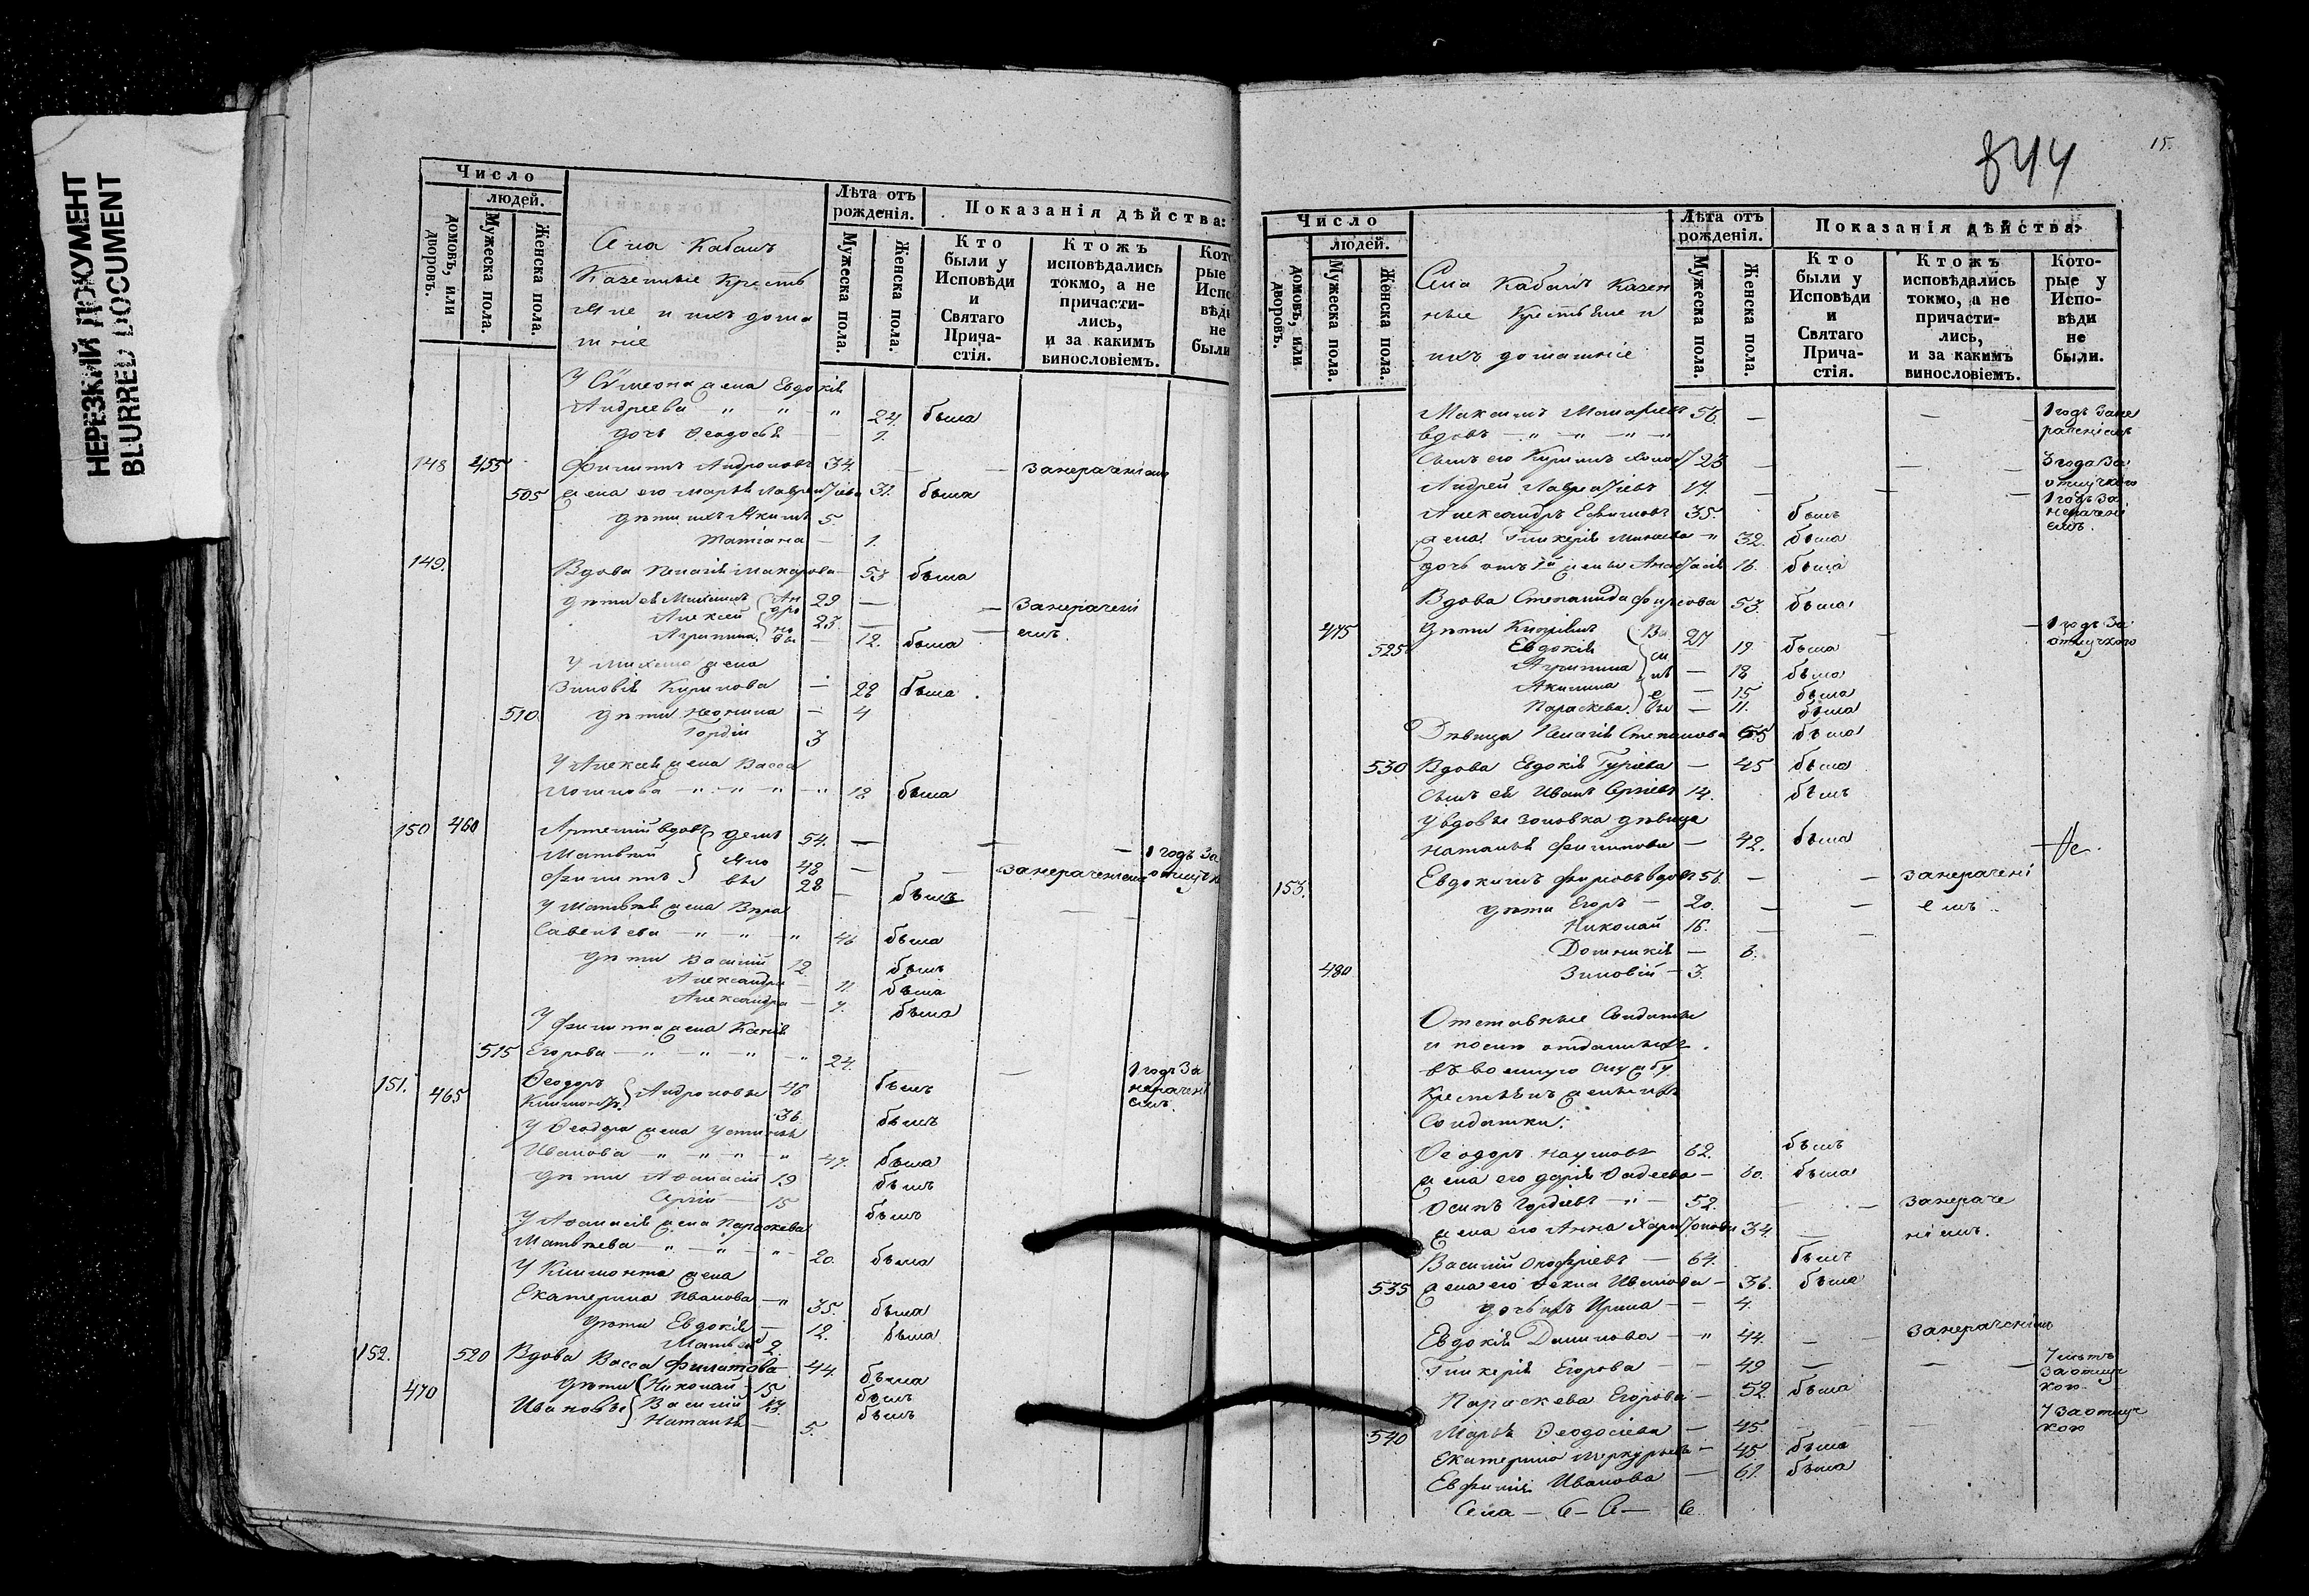 НЕРЕЗКИЙ ДОКУМЕНТ
BLURRED DOCUMENT
Число
людей.
домовъ, или дворовъ.
Мужеска пола.
Женска пола.
Села Кабанъ
Казенные Кресть
яне и ихъ дома
шніе
Лѣта отъ рожденія.
Мужеска пола.
Женска пола.
Показанія дѣйства:
Кто были у Исповѣди и Святаго Прича-стія.
Ктожъ исповѣдались токмо, а не причасти-лись, и за какимъ винословіемъ.
У Сѵмеона жена Евдокія
Андреева — " " " 24. была
дочь Ѳеодосія — 1.
148 455 Филиппъ Андроновъ 34. — — за нераченіемъ
505 жена его Марья Лаврентіева 31. была
дѣти ихъ Якимъ 5.
Татіана — 1.
149. Вдова Пелагія Макарова — 53 была
дѣти ея Михаилъ 29 — — За нерачені
Алексей 23. — — емъ.
Агрипина — 12. была
У Михаила жена
Зиновія Кирилова — 28 была.
510. дѣти Неонила — 4
Гордій 3
У Алексея жена Васса
Логинова — " — " — " 18 была
150 460 Артемій вдовъ 54. — — — 1 годъ за
Матвѣй 48 — — за нераченіемъ отлучк
Филиппъ 28 — былъ
У Матвѣя жена Вѣра
Савельева — " — " — " 46 была
дѣти Василій 12. былъ
Александра — 11. была
Александра — 7. была
У Филиппа жена Ксенія
515 Егорова — " — " — " 24.
151. 465 Ѳеодоръ Андроновы 46 былъ — 1 годъ За
Климонтъ 36. былъ нерачені
емъ.
У Ѳеодора жена Устинья
Иванова — " — " — " 47. была
дѣти Аѳанасій 19 былъ
Сергій — 15 былъ
У Аѳанасія жена Параскева
Матвѣева — " — " — " 20. была
У Климонта жена
Екатерина Иванова — " 35. была
дѣти Евдокія — 12. была
Матвѣй 2.
152. 520 Вдова Васса Филатова 44. была
470 дѣти Николай 15. былъ
Ивановы Василій 13. былъ
Наталья — 5.
844
15.
Число
людей.
домовъ, или дворовъ.
Мужеска пола.
Женска пола.
Села Кабанъ Казен
ные Крестьяне и
ихъ домашніе
Лѣта отъ рожденія.
Мужеска пола.
Женска пола.
Показанія дѣйства:
Кто были у Исповѣди и Святаго Прича-стія.
Ктожъ исповѣдались токмо, а не причасти-лись, и за какимъ винословіемъ.
Кото-рые у Испо-вѣди не были.
Максимъ 56. — — 1 годъ за не
вдовъ — " — " — " — " раченіемъ
Сынъ его 23 — — — 3 года за
отлучкою
Андрей Лаврентіевъ 17. — — — 1 годъ за
Александръ Ефимовъ 35. былъ нерачені
емъ.
жена Гликерія Минаева — " 32. была
дочь отъ 1й жены Анастасія 16. была
Вдова Степанида Фирсова 53. была
475 дѣти 27 — — 1 годъ За
525 Евдокія 19. была отлучкою
Агрипина — 18 была
Акилина — 15 была
Параскева — 11. была
Дѣвица Пелагія Степанова 55 была
530 Вдова Евдокія Гурьева — 45 была
Сынъ ея Иванъ Сергѣевъ 14. былъ
У вдовы золовка дѣвица
Наталья Филипова — 42. была
153. Евдокимъ Фировъ вдовъ 56. — — за нерачені
дѣти Егоръ — 20. — — емъ.
Николай 16. — —
Домникія — 6.
480 Зиновій — 3.
Отставные Солдаты
и после отданныхъ
въ военную службу
Крестьянъ жены ихъ
Солдатки.
Ѳеодоръ Наумовъ 62. былъ
жена его Дарія Фадеева — 60. была
Осипъ Гордѣевъ — " — 52. — — за нераче
жена его Анна Харитонова 34. — ніемъ.
Василій Онофріевъ — 64. былъ
535 жена его Ѳекла Иванова — 36. была
дочь ихъ Ирина — — 4.
Евдокія Данилова — " 44. — — за нераченіемъ
Гликерія Егорова — — 49 — — — 7 лѣтъ
за отлуч
кою
Параскева Егорова — 52. была
540 Марья Ѳеодосіева — 45. — — 7 за отлуч
кою
Екатерина Меркурьева — 45. была
Евфимія Иванова — 61. была